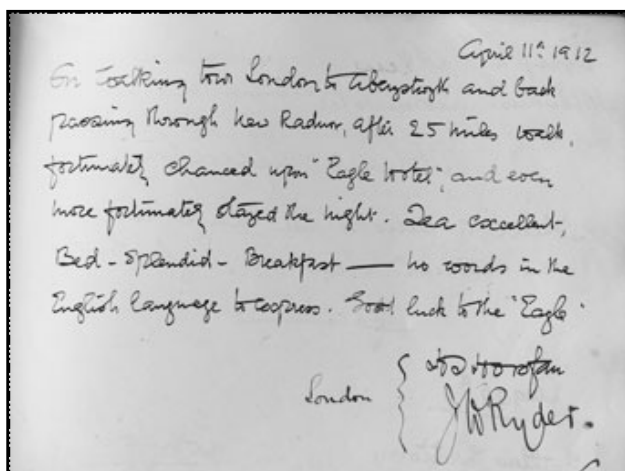 April 11th 1912
On walking tour London to Aberystwyth and back
passing through New Radnor, after 25 miles walk,
fortunately chanced upon "Eagle Hotel", and even
more fortunately stayed the night. Tea excellent,
Bed - Splendid - Breakfast — no words in the
English language to express. Good luck to the "Eagle"
London
J W Ryder.